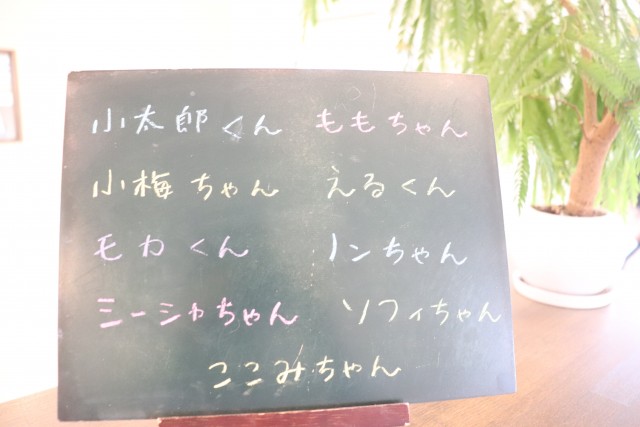 小太郎くん ももちゃん
小梅ちゃん えるくん
モカくん ノンちゃん
ミーシャちゃん ソフィちゃん
ここみちゃん